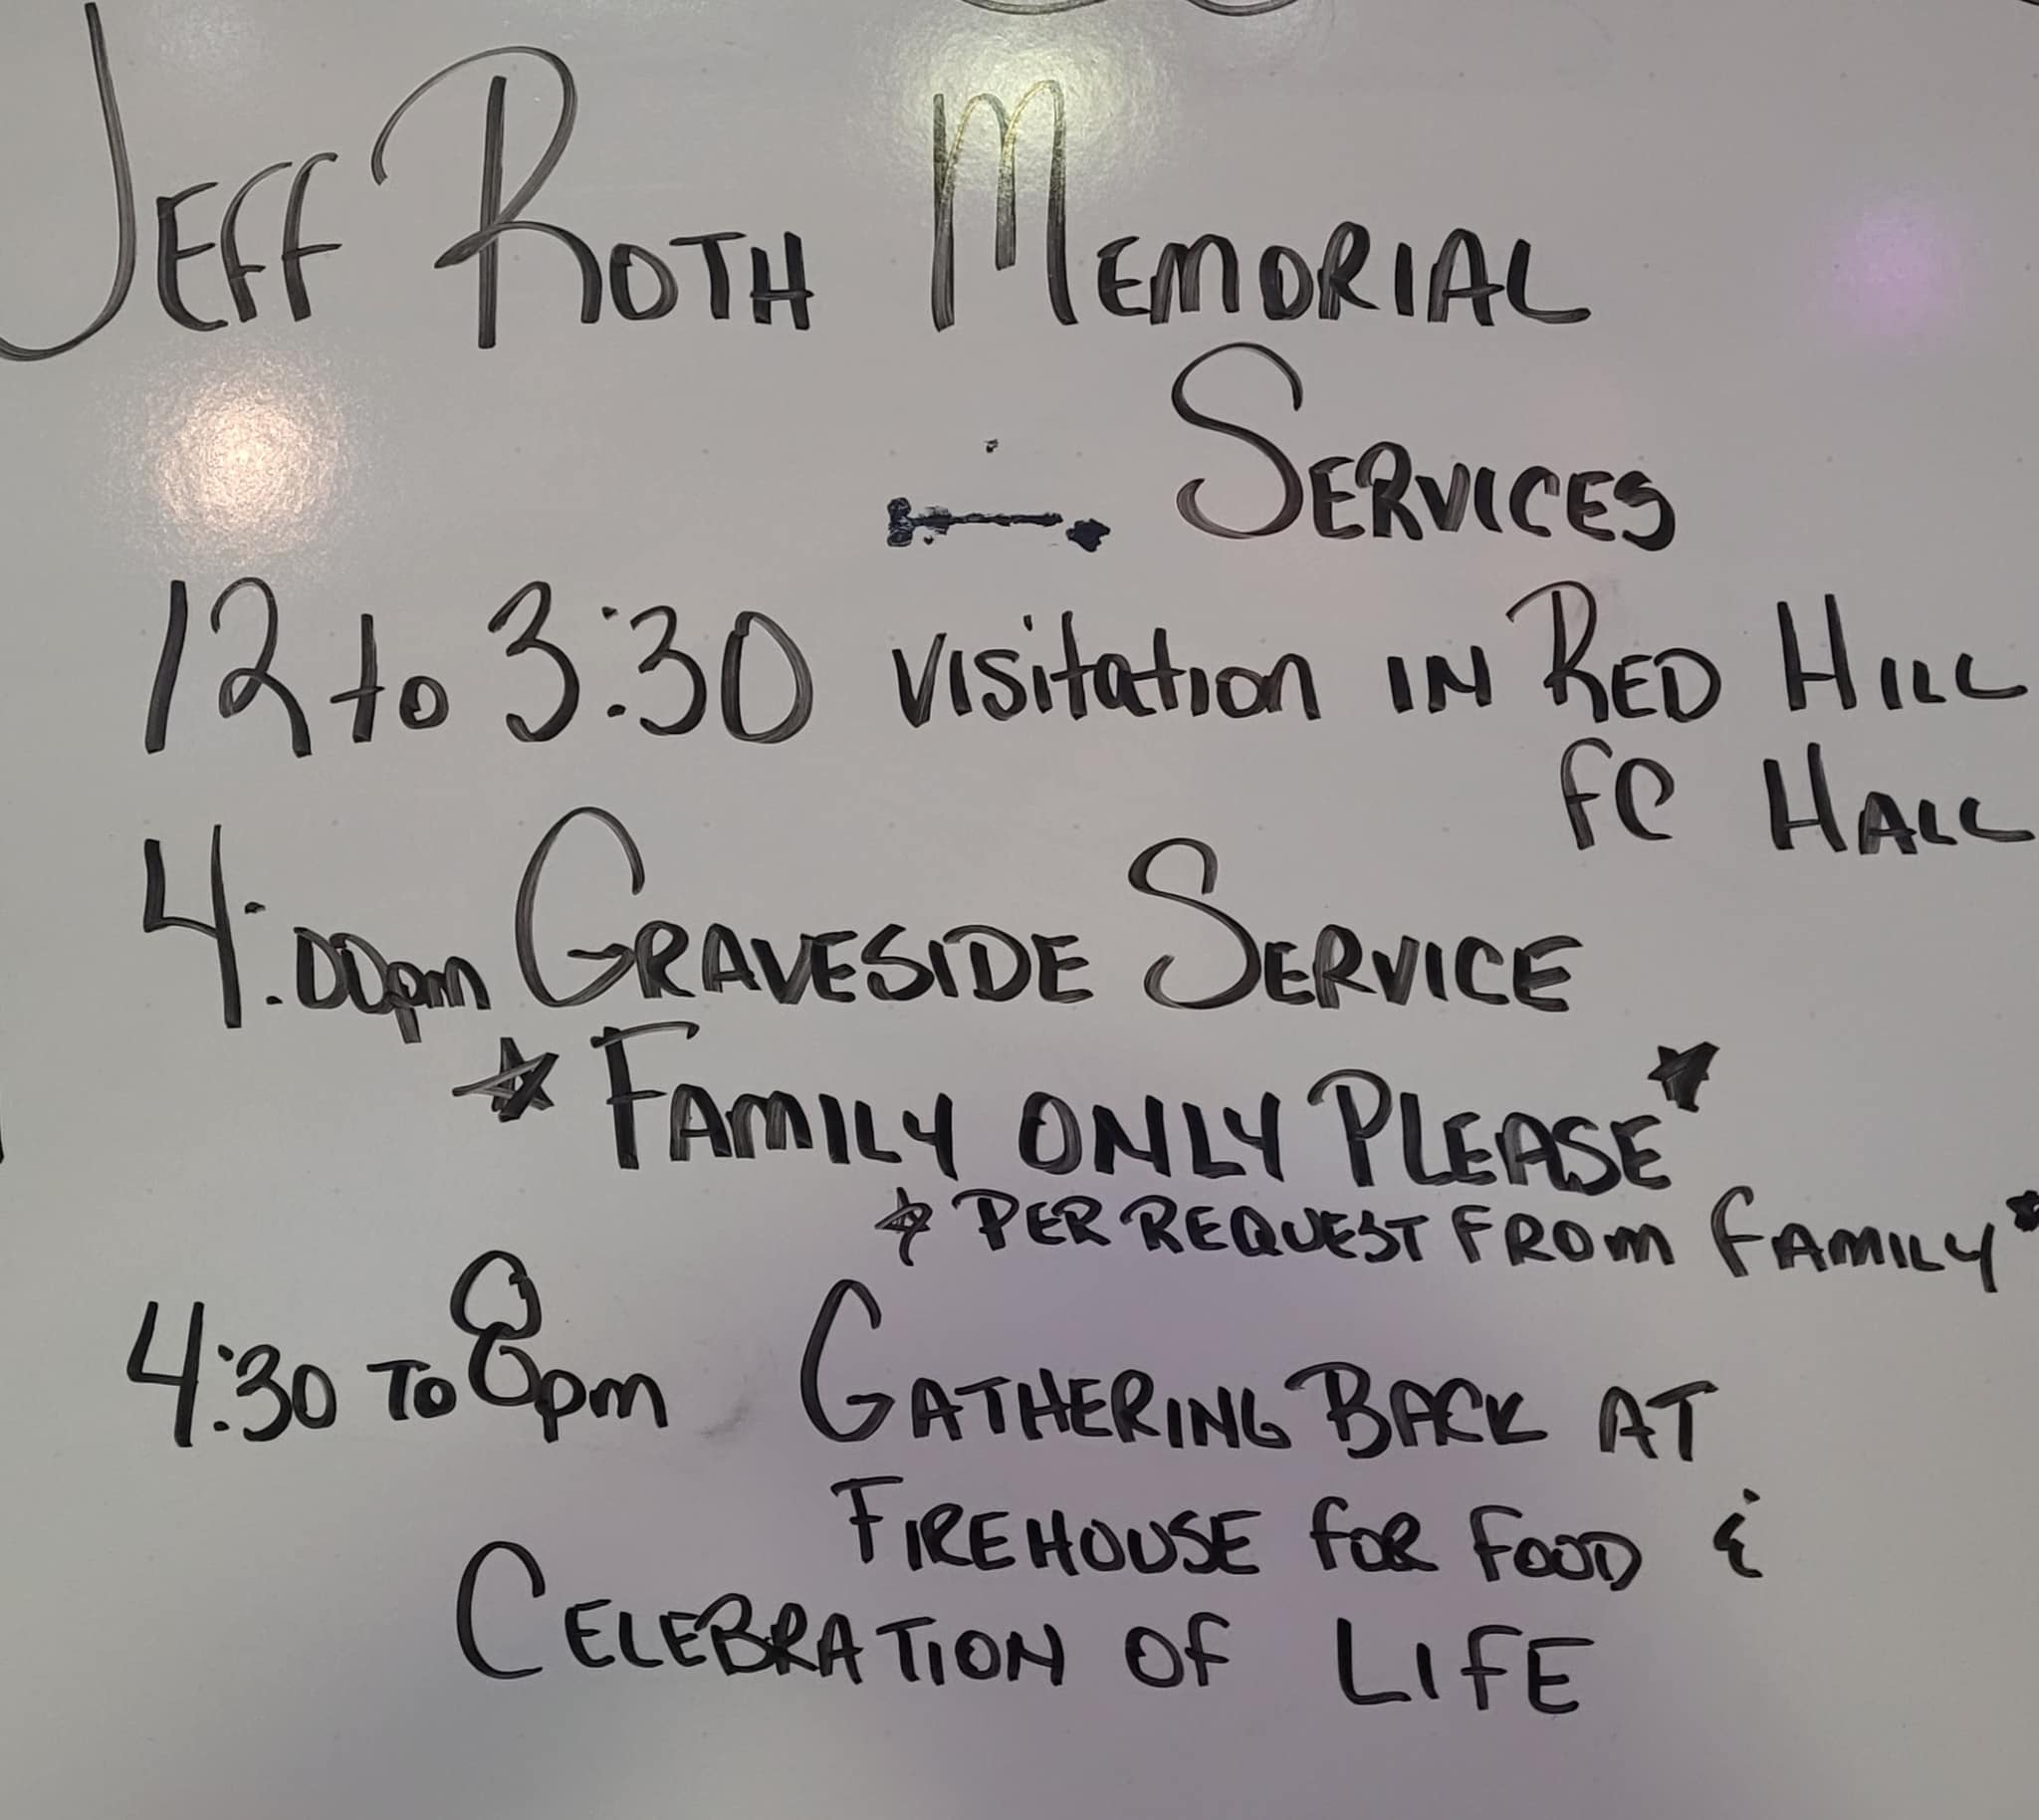 JEFF ROTH MEMORIAL
SERVICES
12 to 3:30 visitation IN RED HILL
FC HALL
4:00pm GRAVESIDE SERVICE
* FAMILY ONLY PLEASE *
* PER REQUEST FROM FAMILY *
4:30 TO 8pm GATHERING BACK AT
FIREHOUSE FOR FOOD &
CELEBRATION OF LIFE